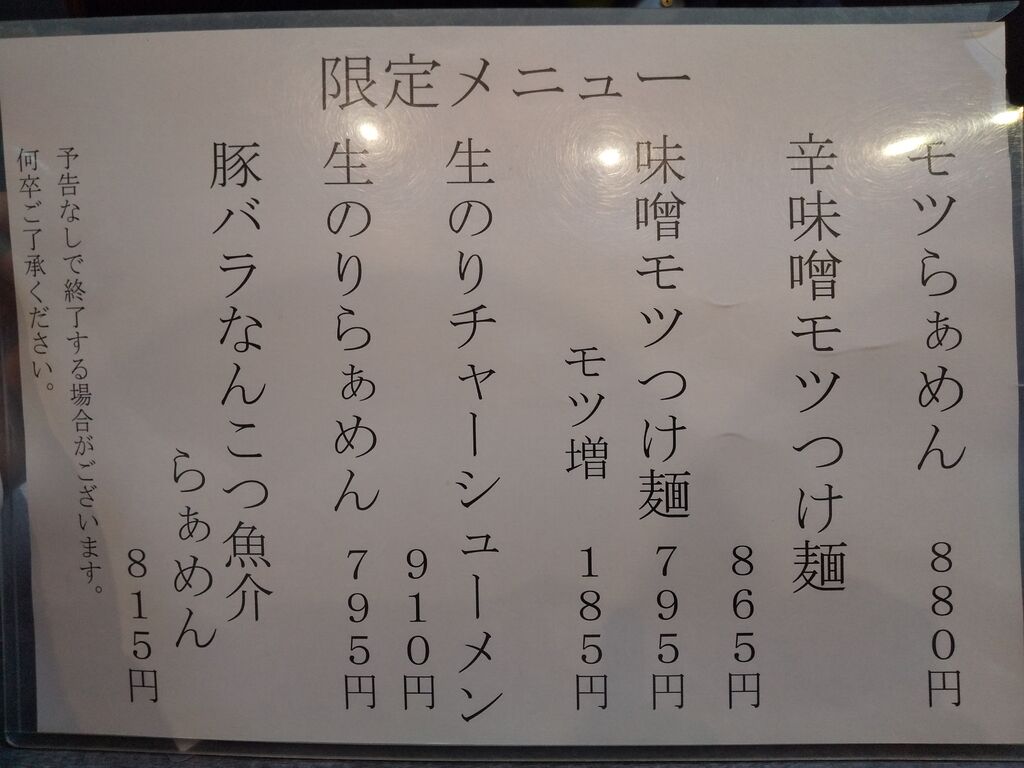 限定メニュー
モツらぁめん 880円
辛味噌モツつけ麺
865円
味噌モツつけ麺 795円
モツ増 185円
生のりチャーシューメン
910円
生のりらぁめん 795円
豚バラなんこつ魚介
らぁめん
815円
予告なしで終了する場合がございます。
何卒ご了承ください。